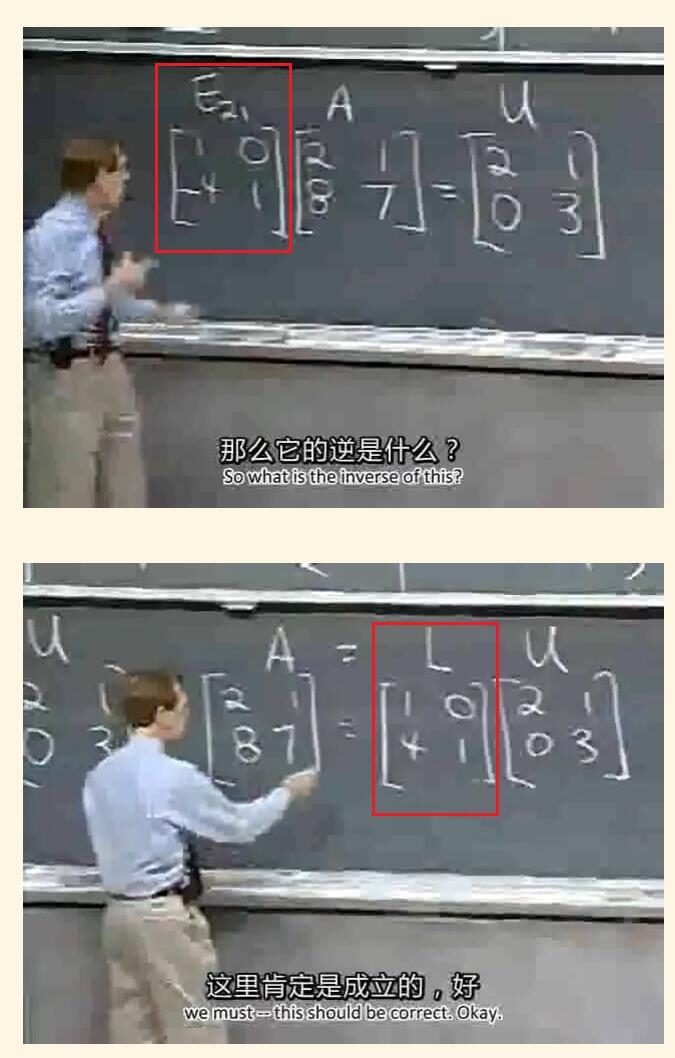 E21 A U
[1 0] [2 1] [2 1]
[-4 1] [8 7] = [0 3]
那么它的逆是什么？
So what is the inverse of this?
U A = L U
2 1 [2 1] = [1 0] [2 1]
0 3 [8 7] [4 1] [0 3]
这里肯定是成立的，好
we must -- this should be correct. Okay.